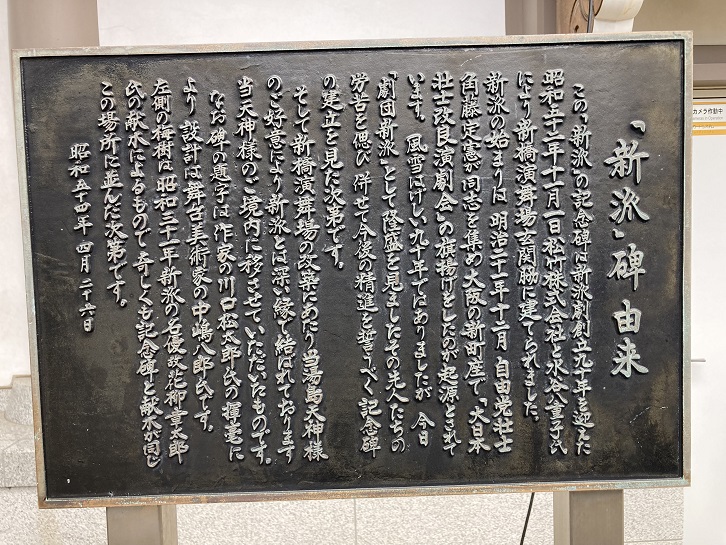 「新派」碑由来
この「新派」の記念碑は新派劇創立九十年を迎えた
昭和五十二年十一月一日松竹株式会社と水谷八重子氏
により新橋演舞場玄関脇に建てられました。
新派の始まりは 明治二十一年十二月 自由党壮士
角藤定憲が同志を集め大阪の新町座で、「大日本
壮士改良演劇会」の旗揚げをしたのが起源とされて
います。風雪はげしい九十年ではありましたが 今日
「劇団新派」として隆盛を見ましたその先人たちの
労苦を偲び 併せて今後の精進を誓うべく記念碑
の建立を見た次第です。
そして新橋演舞場の改築にあたり当湯島天神様
のご好意により新派とは深い縁で結ばれております
当天神様のご境内に移させていただいたものです。
なお碑の題字は作家の川口松太郎氏の揮毫に
より 設計は舞台美術家の中嶋八郎氏です。
左側の梅樹は昭和三十一年新派の名優故花柳章太郎
氏の献木によるもので 奇しくも記念碑と献木が同じ
この場所に並んだ次第です。
昭和五十四年 四月 二十六日
カメラ作動中